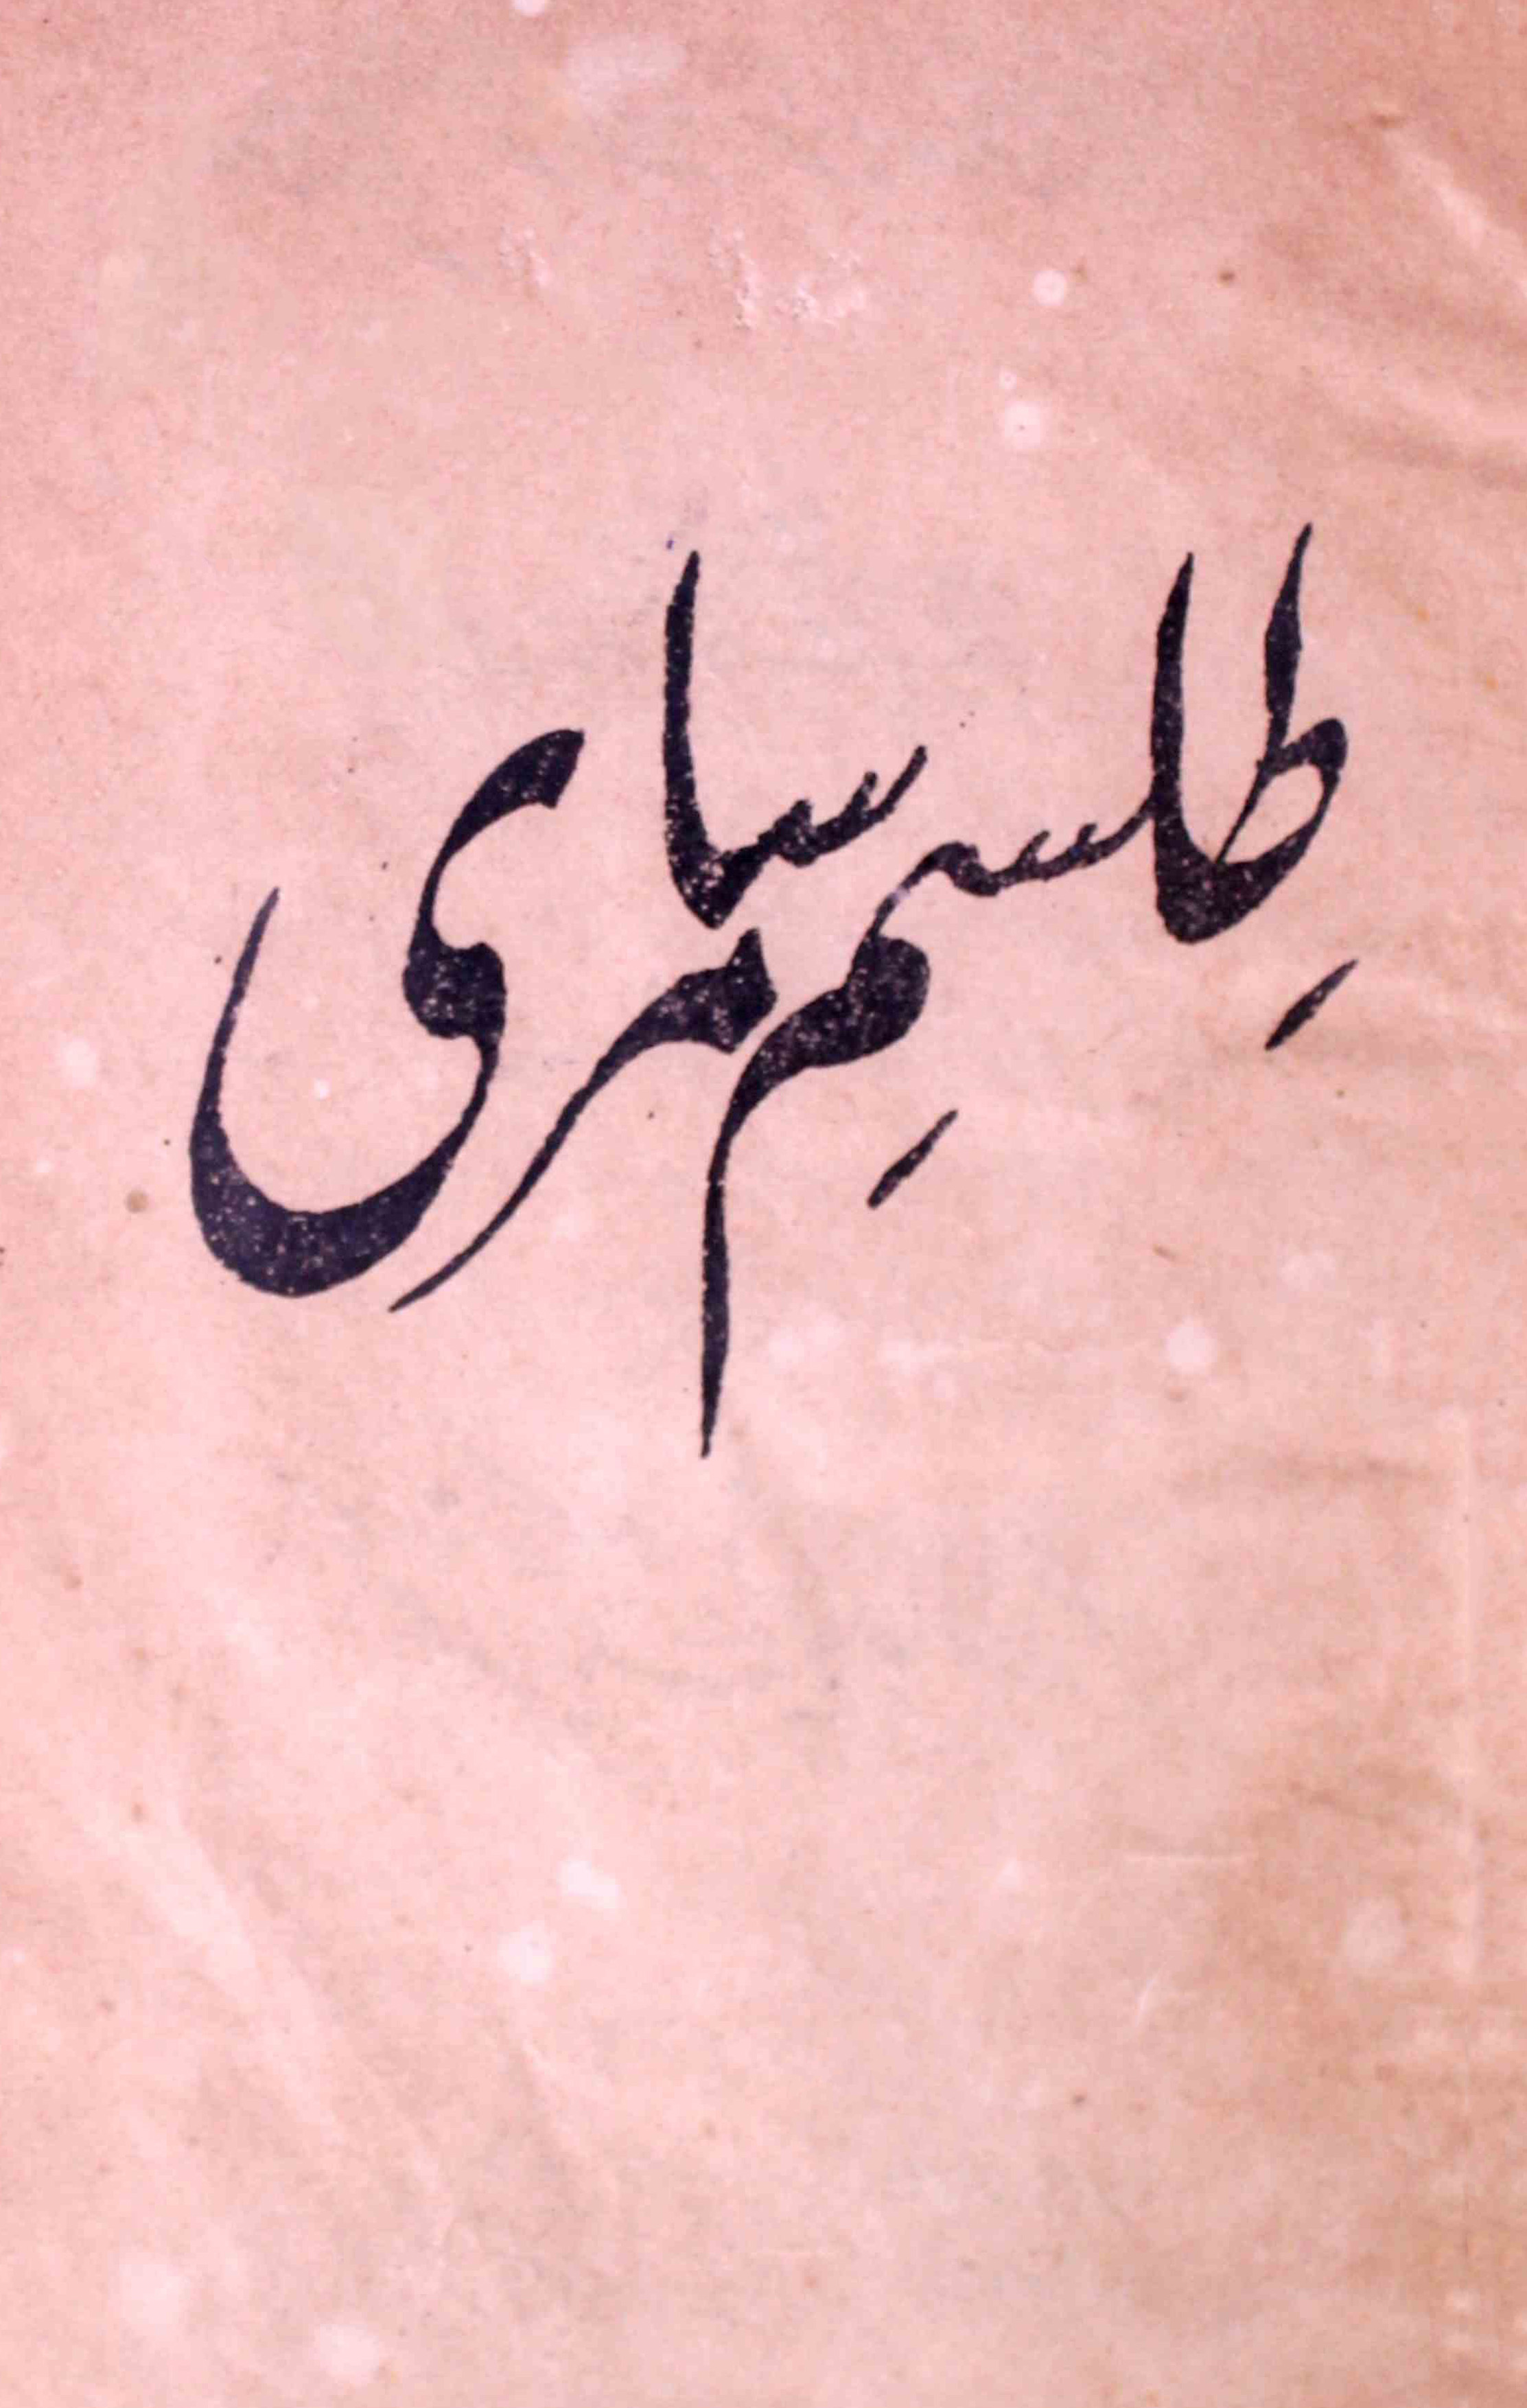 طِلسمِ سامری